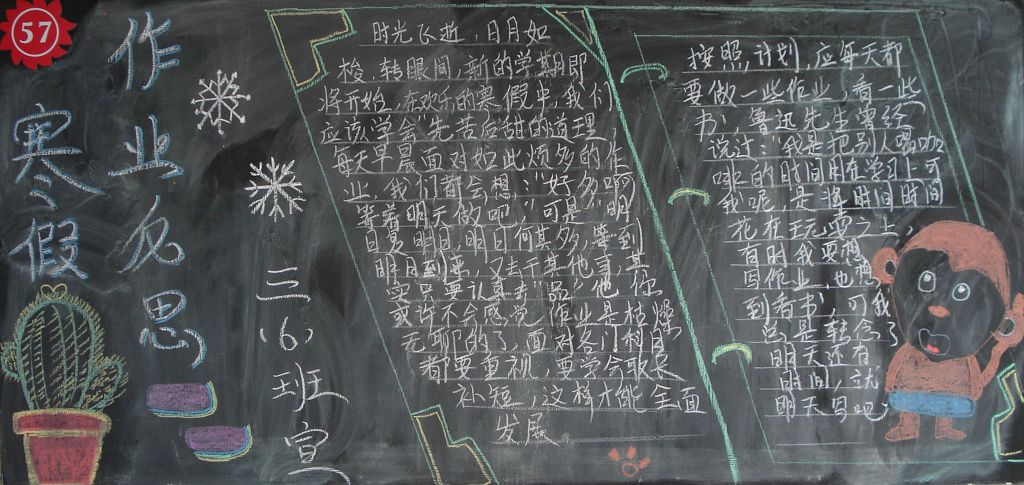 57
寒假
作业免思
二(6)班宣
时光飞逝，日月如
梭，转眼间，新的学期即
将开始，在欢乐的寒假里，我们
应该学会“先苦后甜的道理，
每天早晨面对如此烦多的作
业，我们都会想：“好多啊
等着明天做吧，可是“明
日复明日，明日何其多，等到
明日到来，又去干其他事，其
实只要认真去“品”他，你
或许不会感觉，作业是枯燥
无聊的了，面对各门科目
都要重视，要学会取长
补短，这样才能全面
发展
按照，计划，应每天都
要做一些作业，看一些
书，鲁迅先生曾经
说过：“我是把别人喝咖
啡的时间用在学习上可
我呢，是将时间时间
花在玩耍之上，
有时我要想
写作业，也想
到看书，可我
总是转念
明天还有
时间，就
明天写吧